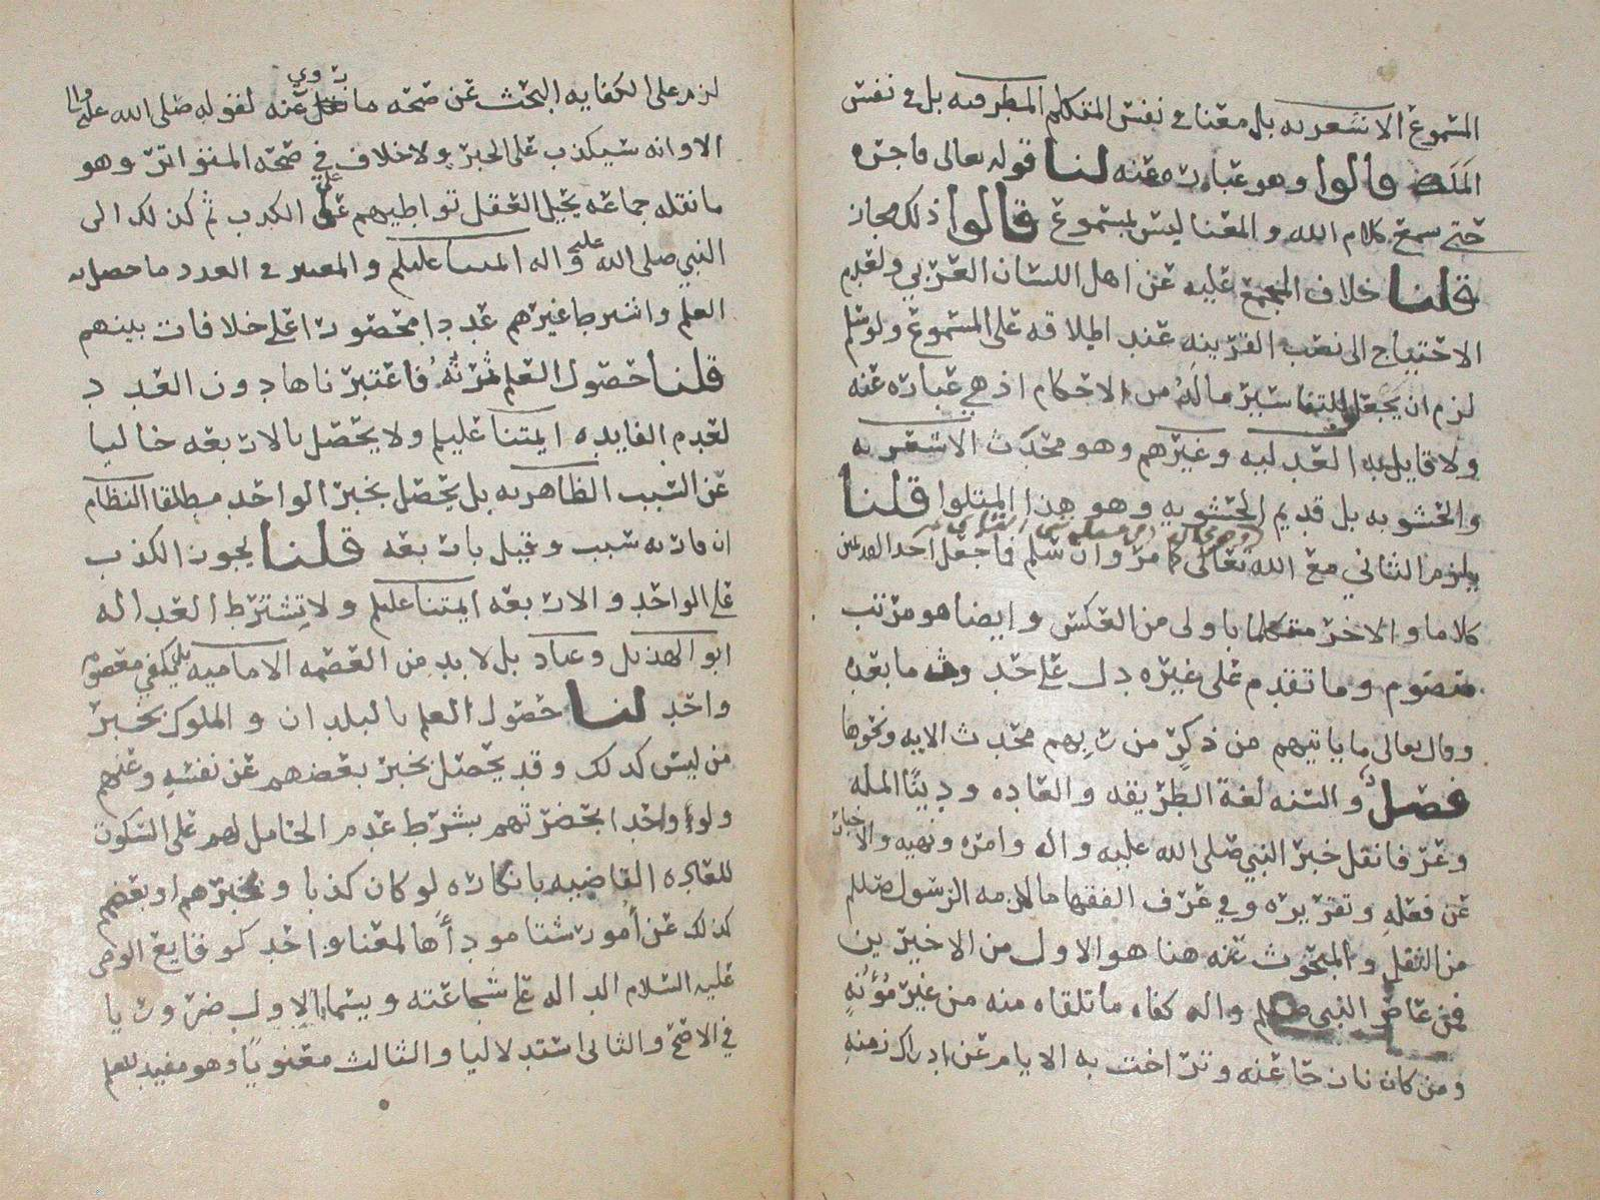 المسموع الاشعريه بل معنا في نفس المتكلم المطرفيه بل في نفس
الملك قالوا وهو عباره عنه لنا قوله تعالى فاجره
حتى يسمع كلام الله والمعنا ليس بمسموع قالوا ذلك مجاز
قلنا خلاف المجمع عليه عن اهل اللسان العربي ولعدم
الاحتياج الى نصب القرينه عند اطلاقه على المسموع ولو سلم
لزم ان يجعل للتفاسير ماله من الاحكام اذ هي عباره عنه
ولا قايل به العدليه وغيرهم وهو محدث الاشعريه
والحشويه بل قديم الحشويه وهو هذا المتلوا قلنا
يلزم الثاني مع الله تعالى كما مر وان سلم فاجعل احد القديمين
كلاما والاخر متكلما باولى من العكس وايضا هو مرتب
منضوم وما تقدم على غيره دل على حدوثه ما بعده
وقال تعالى ما ياتيهم من ذكر من ربهم محدث الايه ونحوها
فصل والسنه لغة الطريقه والعاده ودينا المله
وعرفا نقل خبر النبي صلى الله عليه واله وامره ونهيه والاخبار
عن فعله وتقريره وفي عرف الفقها ما لازمه الرسول صللم
من النفل والمبحوث عنه هنا هو الاول من الاخيرين
فمن عاصر النبي صللم واله كفاه ما تلقاه منه من غير مؤنه
ومن كان نازحا عنه وتراخت به الايام عن ادراك زمنه
لزم على الكفايه البحث عن صحه ما روي عنه لقوله صلى الله عليه واله
الا وانه سيكذب علي الخبر ولا خلاف في صحه المتواتر وهو
ما نقله جماعه يحيل العقل تواطيهم على الكذب ثم كذلك الى
النبي صلى الله عليه واله ايمتنا عليلم والمعتبر في العدد ما حصل به
العلم واشترط غيرهم عددا محصورا على خلافات بينهم
قلنا حصول العلم ثمرته فاعتبرناها دون العدد
لعدم الفايده ايمتنا عليلم ولا يحصل بالاربعه خاليا
عن السبب الظاهريه بل يحصل بخبر الواحد مطلقا النظام
ان قارنه سبب وقيل باربعه قلنا يجوز الكذب
على الواحد والاربعه ايمتنا عليلم ولا تشترط العداله
ابو الهذيل وعباد بل لا بد من العصمه الاماميه بل يكفي معصوم
واحد لنا حصول العلم بالبلدان والملوك بخبر
من ليس كذلك وقد يحصل بخبر بعضهم عن نفسه وعنهم
ولو واحدا بحضرتهم بشرط عدم الحامل لهم على السكوت
للعاده القاضيه بانكاره لو كان كذبا وبخبرهم او بعضهم
كذلك عن امور شتا موداها لمعنا واحد كوقايع الوصي
عليه السلام الداله على شجاعته ويسما الاول ضروريا
في الاصح والثاني استدلاليا والثالث معنويا وهو مفيد للعلم